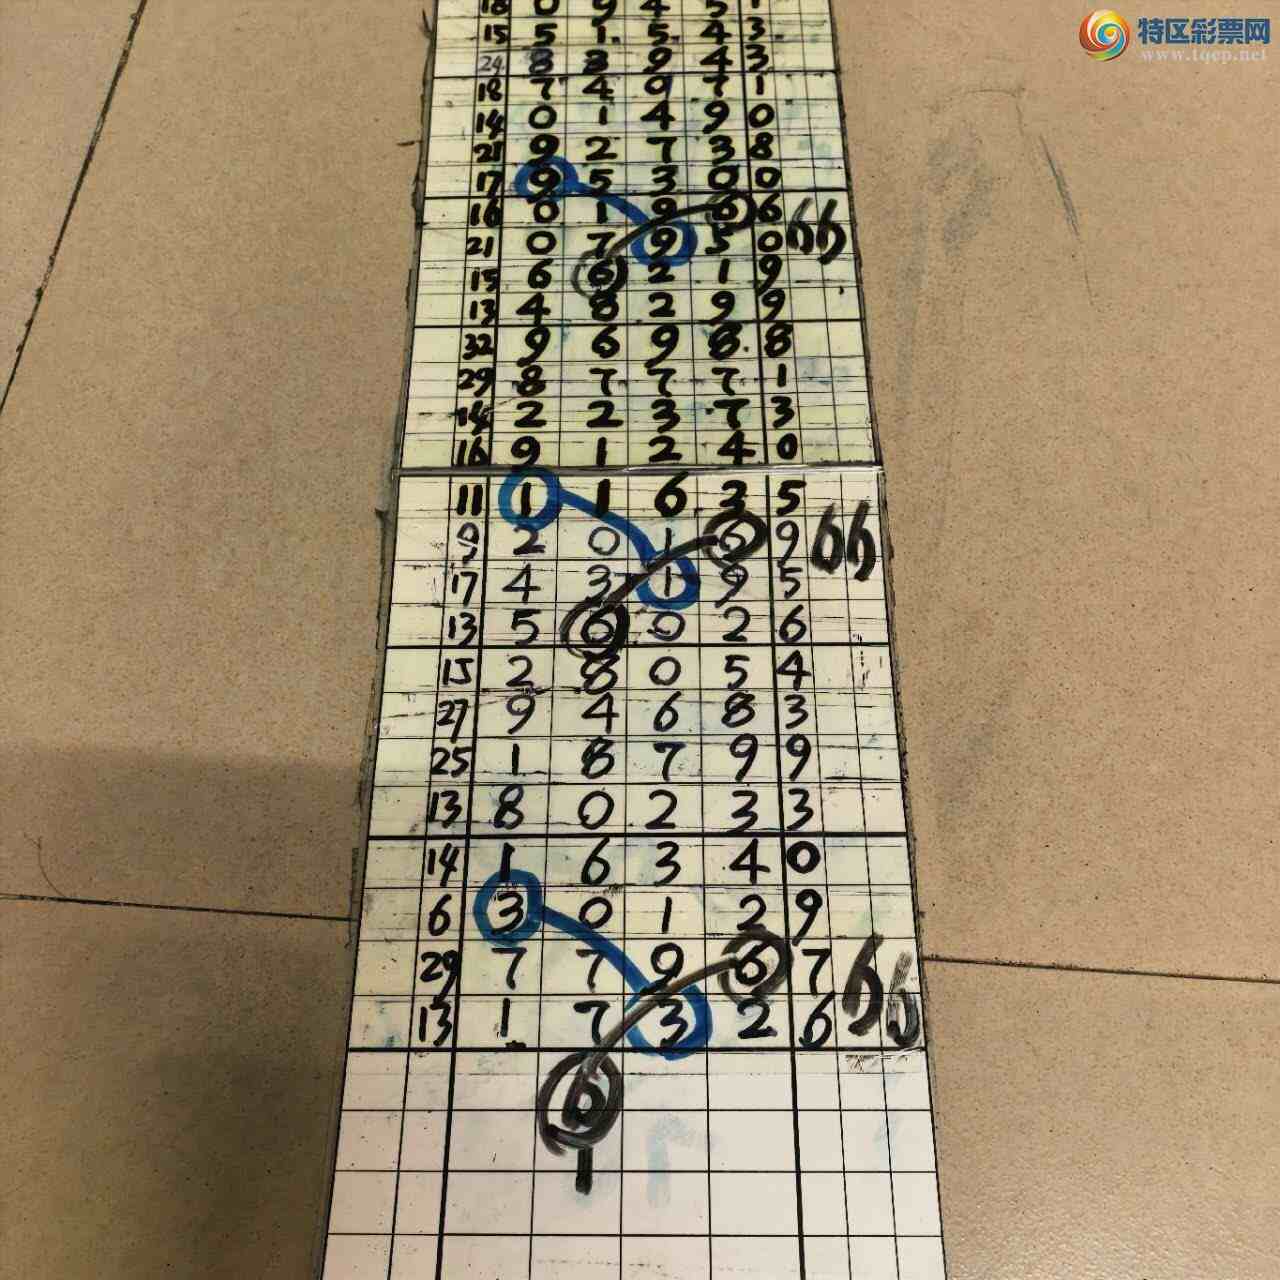 特区彩票网
www.tqcp.net
18 0 9 4 5 1
15 5 1 5 4 3
24 8 8 9 4 3
18 7 4 0 7 1
14 0 1 4 9 0
21 9 2 7 3 8
17 9 5 3 0 0
16 0 1 9 6 6 66
21 0 7 9 5 0
15 6 6 2 1 9
13 4 8 2 9 9
32 9 6 9 8 8
29 8 7 7 7 1
14 2 2 3 7 3
16 9 1 2 4 0
11 1 1 6 3 5
9 2 0 1 6 9 66
17 4 3 1 9 5
13 5 6 0 2 6
15 2 8 0 5 4
27 9 4 6 8 3
25 1 8 7 9 9
13 8 0 2 3 3
14 1 6 3 4 0
6 3 0 1 2 9
29 7 7 9 6 7 66
13 1 7 3 2 6
6
1